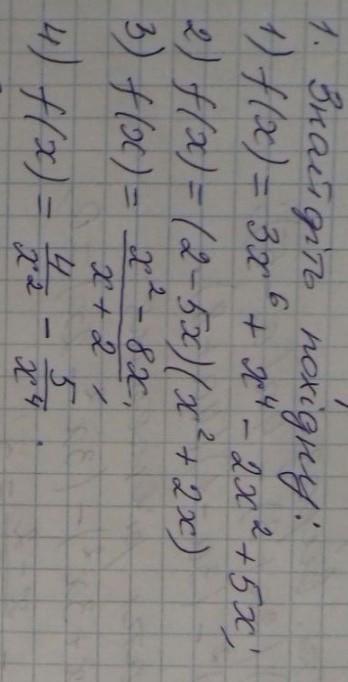 1. Знайдіть похідну:
1) f(x) = 3x⁶ + x⁴ - 2x² + 5x;
2) f(x) = (2 - 5x)(x² + 2x)
3) f(x) = (x² - 8x)/(x + 2);
4) f(x) = 4/x² - 5/x⁴.